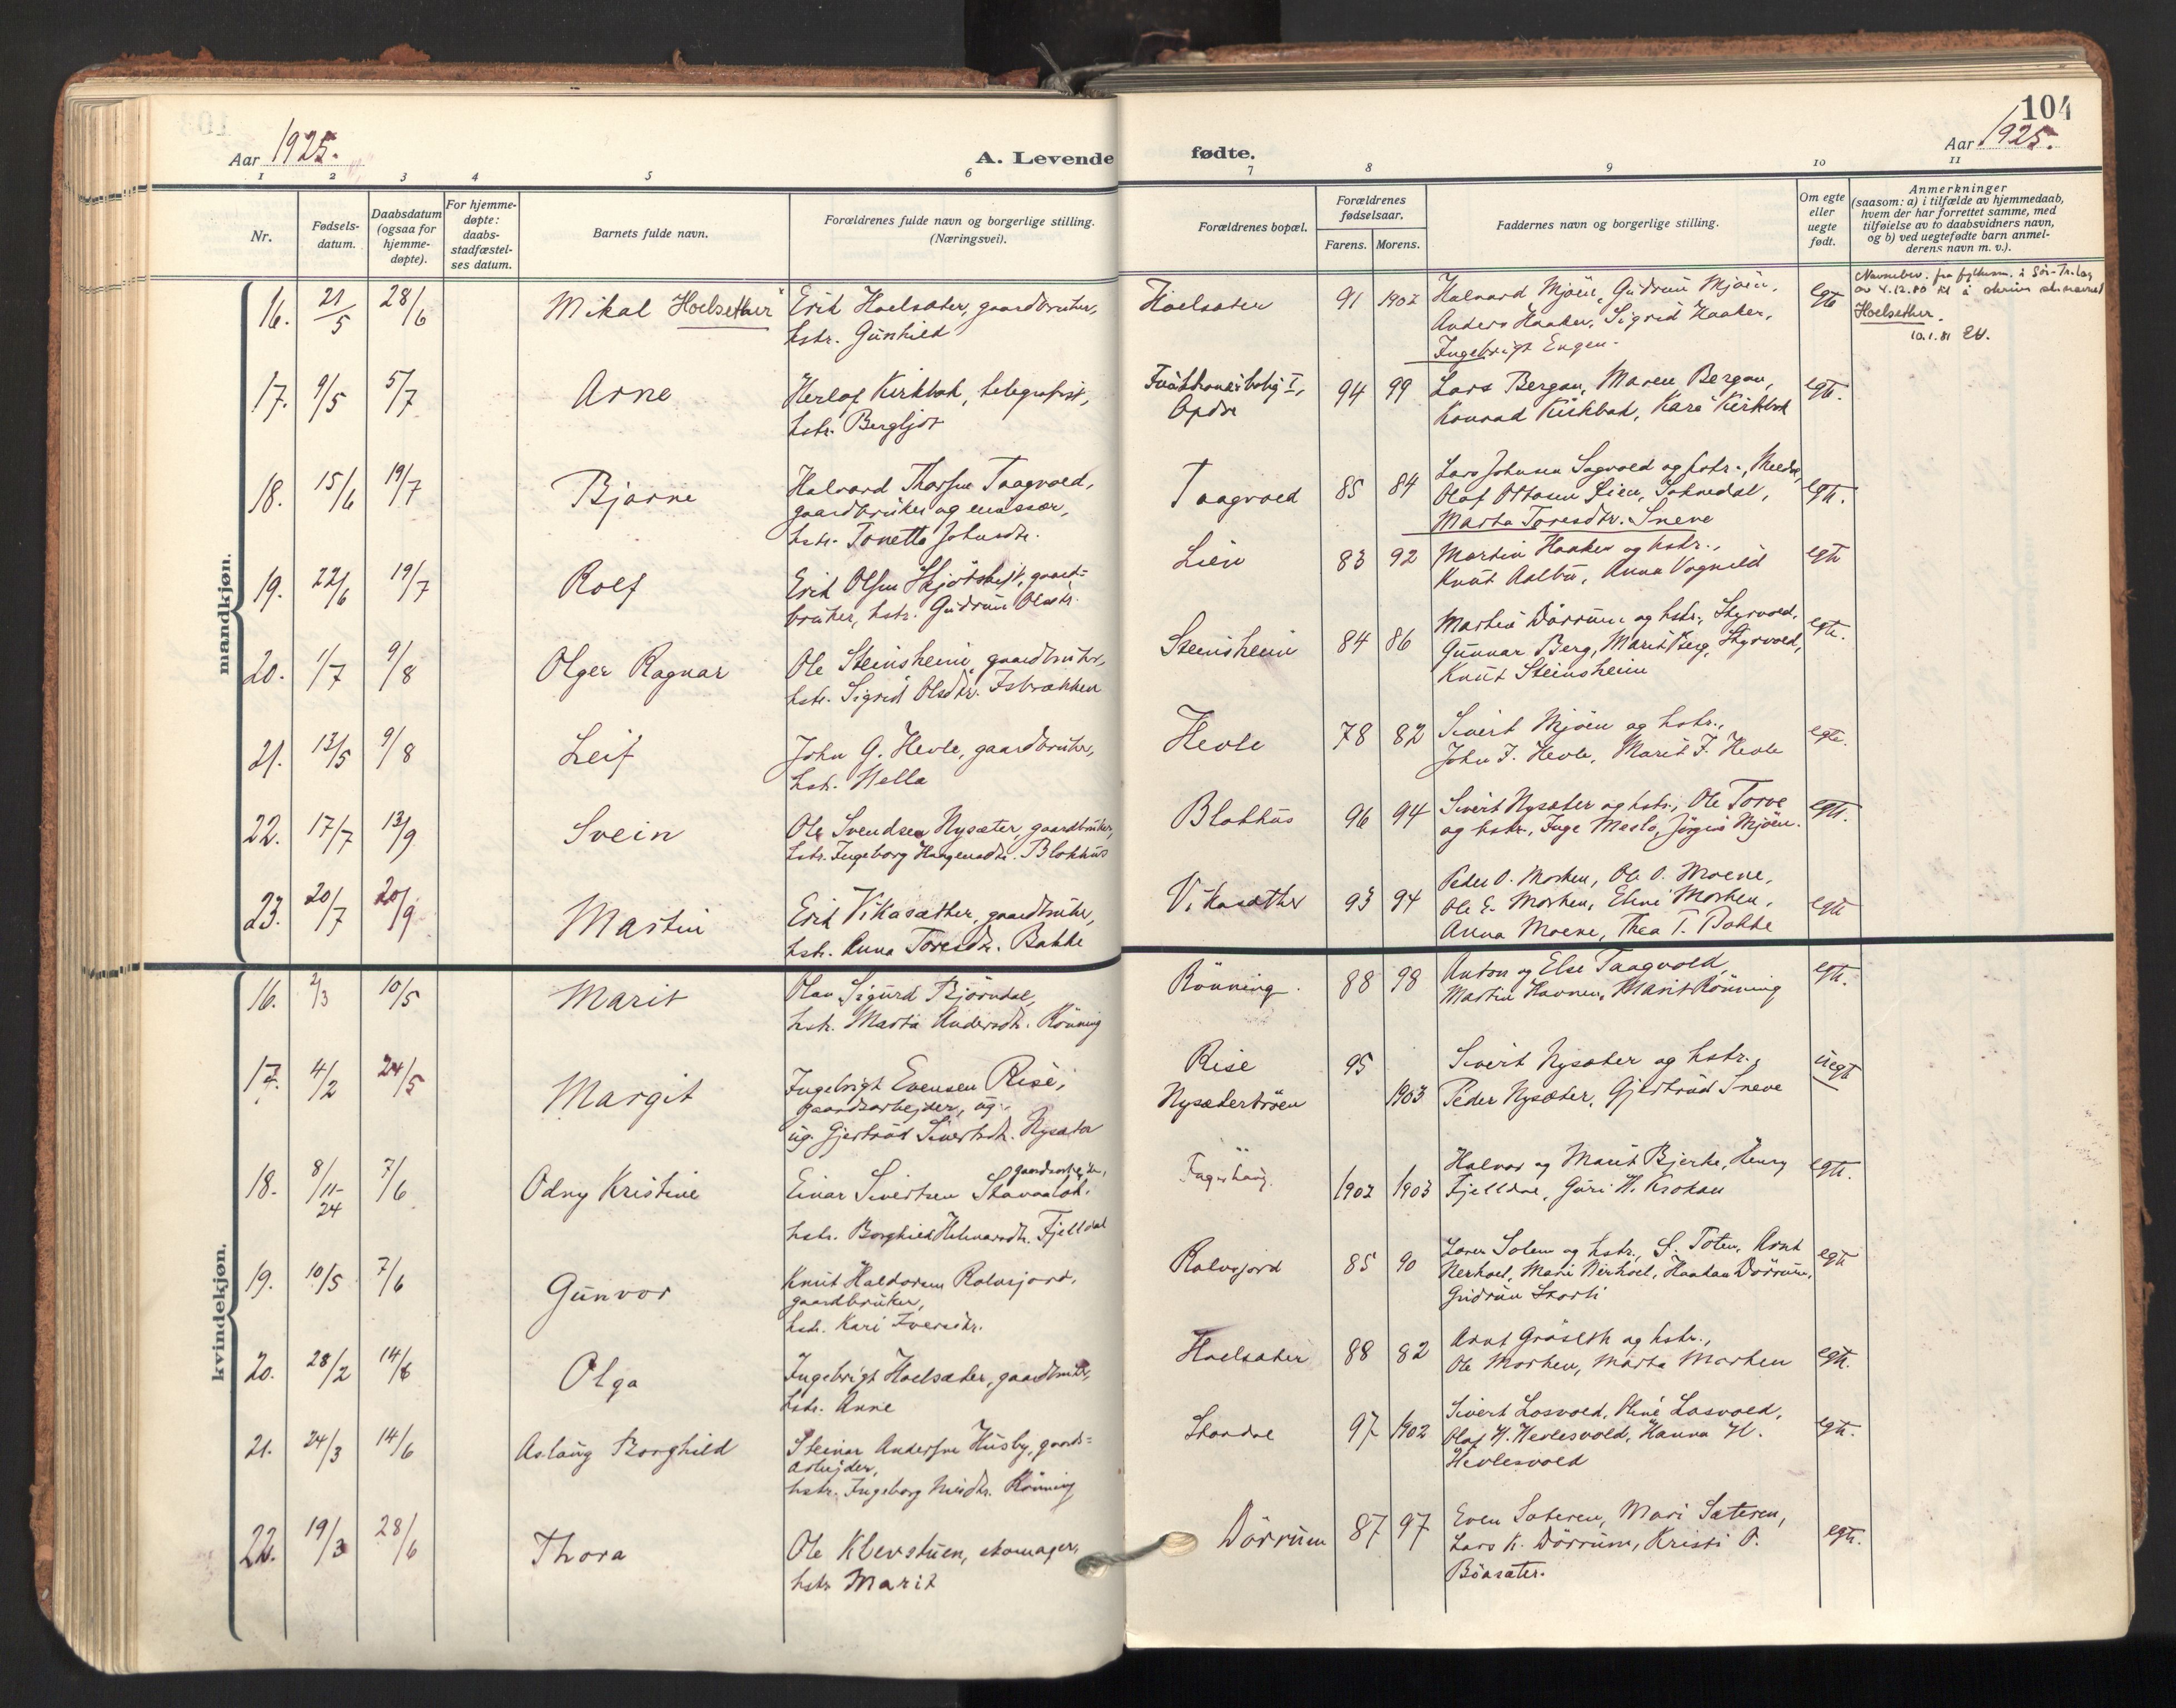 104
Aar 1925.
A. Levende fødte.
Aar 1925.
1 2 3 4 5 6 7 8 9 10 11
Nr.
Fødsels-
datum.
Daabsdatum
(ogsaa for
hjemme-
døpte).
For hjemme-
døpte:
daabs-
stadfæstel-
ses datum.
Barnets fulde navn.
Forældrenes fulde navn og borgerlige stilling.
(Næringsvei).
Forældrenes bopæl.
Forældrenes
fødselsaar.
Farens. Morens.
Faddernes navn og borgerlige stilling.
Om egte
eller
uegte
født.
Anmerkninger
(saasom: a) i tilfælde av hjemmedaab,
hvem der har forrettet samme, med
tilføielse av to daabsvidners navn,
og b) ved uegtefødte barn anmel-
derens navn m. v.).
mandkjøn.
16. 21/5 28/6 Mikal "Hoelsether" Erik Hoelsæter, gaardbruker,
hstr. Gunhild
Hoelsæter 91 1902 Halvard Mjøen, Gudrun Mjøen,
Anders Haaker, Sigrid Haaker,
Ingebrigt Engen.
egte
Navnebev. fra fylkesm. i Sør-Tr.lag
av 4.12.80 til å skrive
Hoelsether.
10.1.81
17. 9/5 5/7 Arne Herlof Kirkbak, telegrafist,
hstr. Bergljot
Opdal 94 99 Lars Bergan, Maren Bergan,
Konrad Kirkbak, Kara Kirkbak
egte.
18. 15/6 19/7 Bjarne Halvard Thorsen Taagvold,
gaardbruker og
hstr. Tonetta Johnsdtr.
Taagvold 85 84 Lars Johnsen Sagvold og hstr.,
Olaf Ottosen Lien, Soknedal,
Marta Toresdtr. Sneve
egte.
19. 22/6 19/7 Rolf Erik Olsen gaard=
bruker, hstr. Gudrun Olsdtr.
Lien 83 92 Martin Haaker og hstr.,
Knut Aalbu, Anna Vognild
egte
20. 1/7 9/8 Olger Ragnar Ole Steinsheim, gaardbruker,
hstr. Sigrid Olsdtr. Isbrekken
Steinsheim 84 86 Martin Dørrum og hstr., Styrvold,
Gunnar Berg, Marit Berg, Styrvold,
Knut Steinsheim
egte.
21. 13/5 9/8 Leif John G. Hevle, gaardbruker,
hstr. Nella
Hevle 78 82 Sivert Mjøen og hstr.,
John J. Hevle, Marit J. Hevle
egte.
22. 17/7 13/9 Svein Ole Svendsen Nysæter, gaardbruker,
hstr. Ingeborg Haagensdtr. Blokhus
Blokhus 96 94 Sivert Nysæter og hstr., Ole Torve
og hstr., Inge Meslo, Jørgine Mjøen.
egte.
23. 20/7 20/9 Martin Erik Vikasæther, gaardbruker,
hstr. Anna Toresdtr. Bakke
Vikasæther 93 94 Peder O. Morken, Ole O. Moene,
Ole E. Morken, Eline Morken,
Anna Moene, Thea T. Bakke
egte
kvindekjøn.
16. 2/3 10/5 Marit Olav Sigurd Bjørndal,
hstr. Marta Andersdtr. Rønning
Rønning. 88 98 Anton og Else Taagvold,
Martin Havnen, Marit Rønning
egte.
17. 4/2 24/5 Margit Ingebrigt Evensen Rise,
gaardsarbejder, og
ug. Gjertrud Sivertsdtr. Nysæter
Rise 95
Nysæterbrøen 1903 Sivert Nysæter og hstr.,
Peder Nysæter, Gjertrud Sneve
uegte
18. 8/11-24 7/6 Odny Kristine Einar Sivertsen gaardsarbejder,
hstr. Borghild Halvarsdtr. Fjelldal
Fagerhaug. 1902 1903 Halvor og Marit Bjerke, Henry
Fjelldal, Guri H. Krokan
egte.
19. 10/5 7/6 Gunvor Knut Haldorsen Rolvsjord,
gaardbruker,
hstr. Kari Iversdtr.
Rolvsjord 85 90 Solem og hstr., S. Toten, Arnt
Nerhoel, Mari Nerhoel, Haakon Dørrum,
Gudrun
egte
20. 28/2 14/6 Olga Ingebrigt Hoelsæter, gaardbruker,
hstr. Anne
Hoelsæter 88 82 Arnt Grøseth og hstr.,
Ole Morken, Marta Morken
egte.
21. 24/3 14/6 Aslaug Borghild Steinar Andersen Husby, gaards=
arbejder,
hstr. Ingeborg Nilsdtr. Rønning
Skordal 97 1902 Sivert Losvold, Oline Losvold,
Olaf H. Hevlesvold, Hanna H.
Hevlesvold
egte.
22. 19/3 28/6 Thora Ole Klevstuen, skomager,
hstr. Marit
Dørrum 87 97 Even Sæteren, Mari Sæteren,
Lars K. Dørrum, Kristi O.
Bøasæter.
egte.